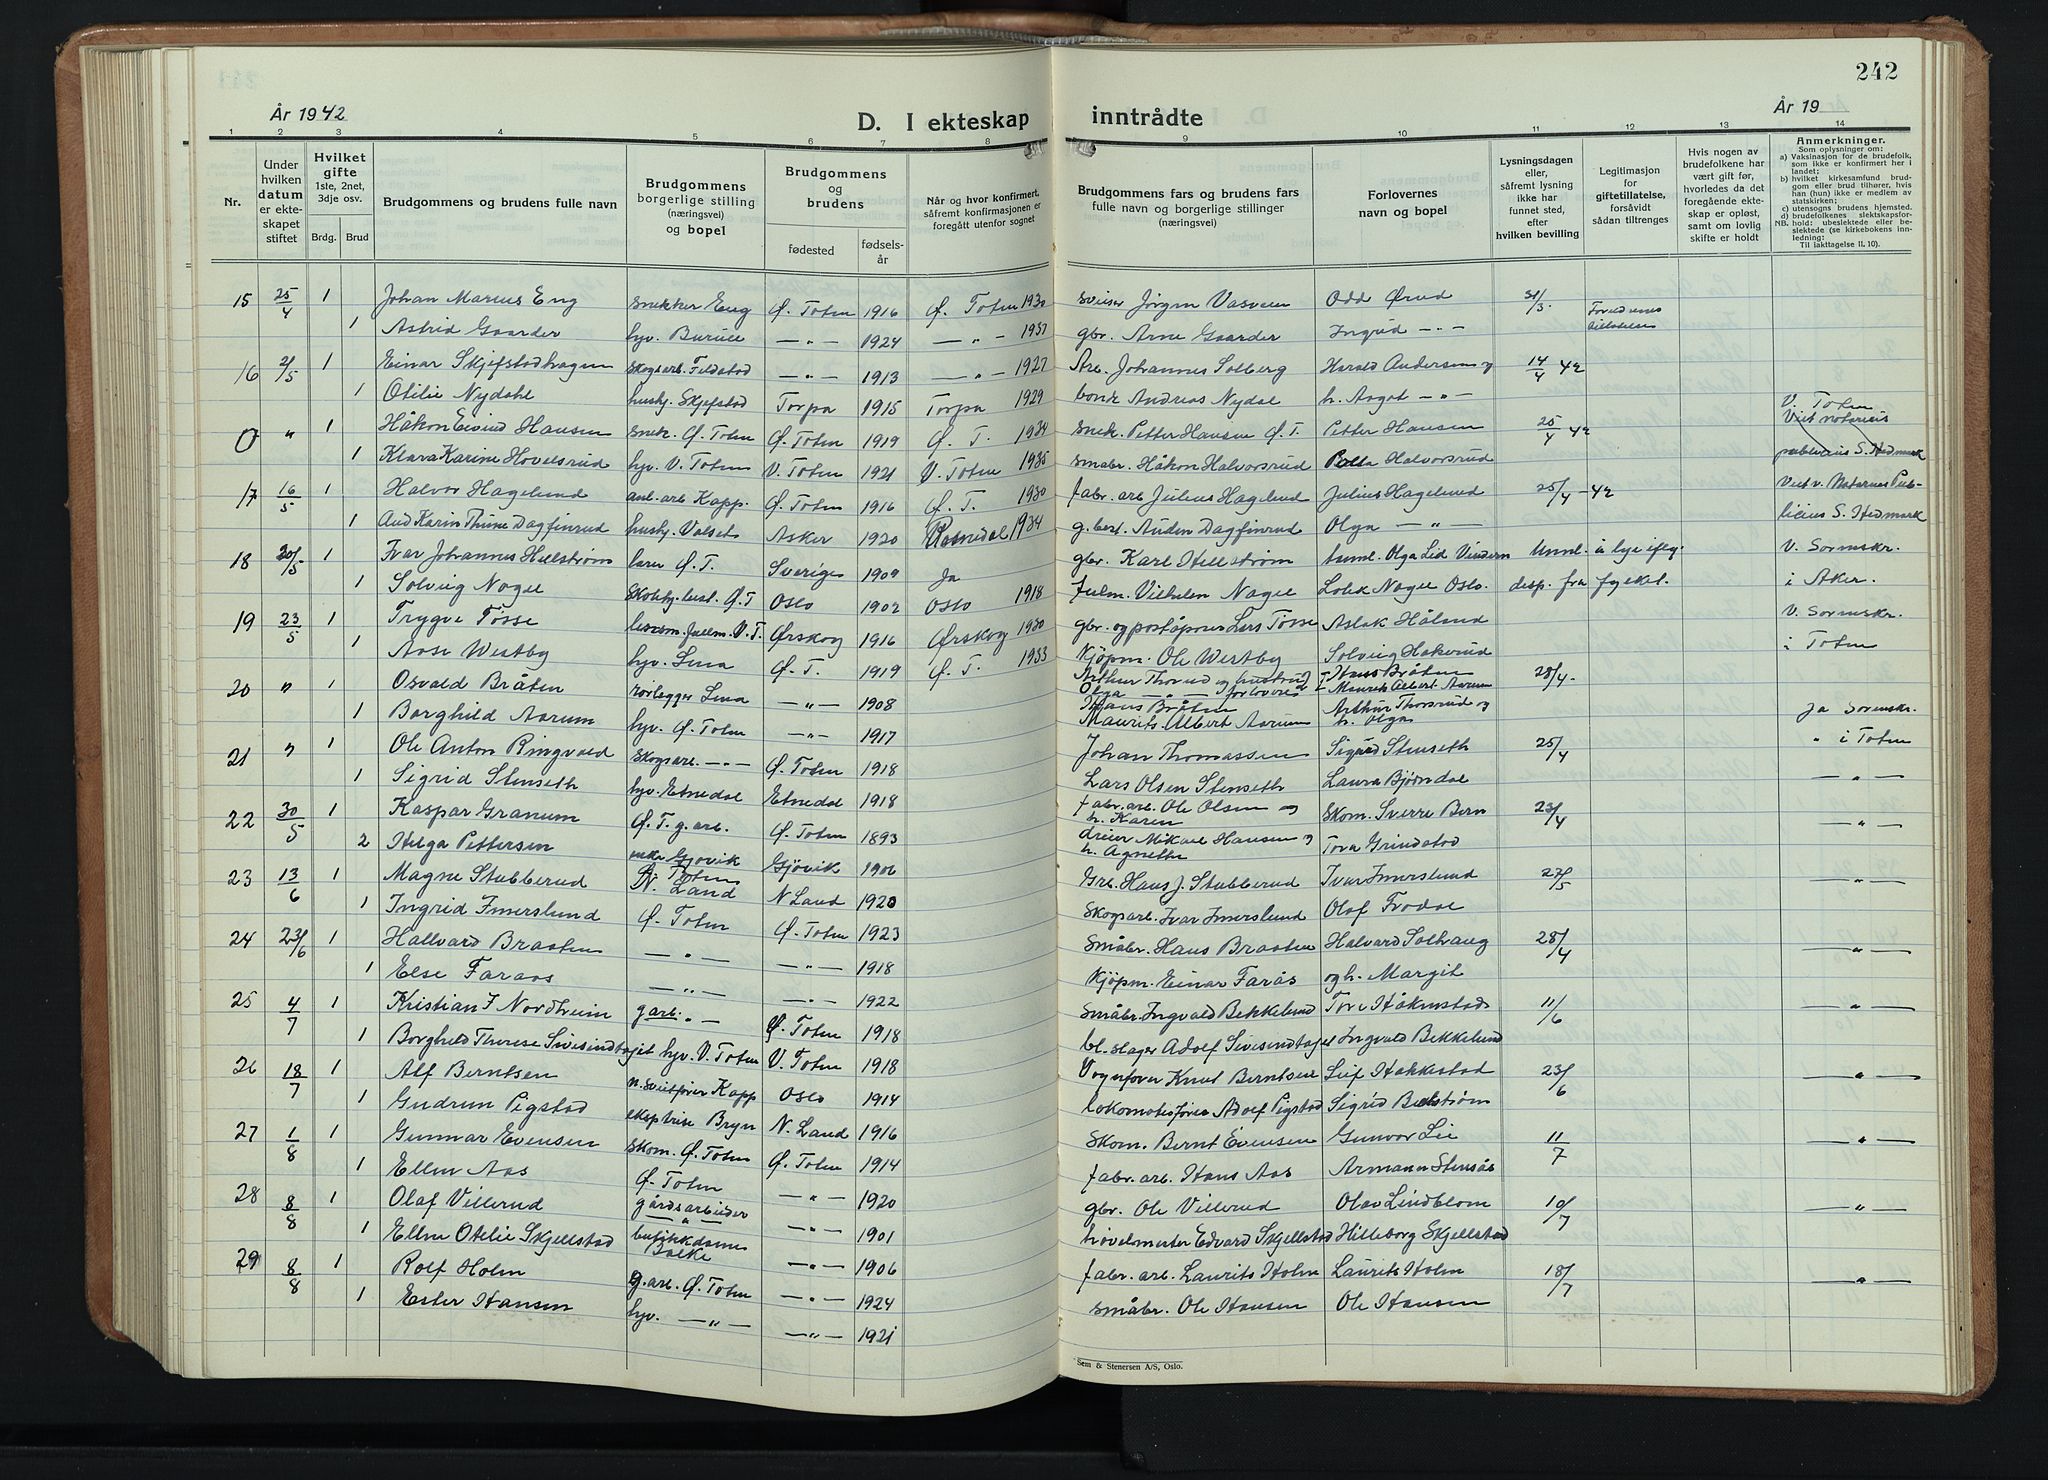 242
År 1942
D. I ekteskap inntrådte
År 19
1 2 3 4 5 6 7 8 9 10 11 12 13 14
Nr.
Under hvilken datum er ekteskapet stiftet
Hvilket gifte 1ste, 2net, 3dje osv.
Brdg. Brud
Brudgommens og brudens fulle navn
Brudgommens borgerlige stilling (næringsvei) og bopel
Brudgommens og brudens
fødested
fødselsår
Når og hvor konfirmert, såfremt konfirmasjonen er foregått utenfor sognet
Brudgommens fars og brudens fars fulle navn og borgerlige stillinger (næringsvei)
Forlovernes navn og bopel
Lysningsdagen eller, såfremt lysning ikke har funnet sted, efter hvilken bevilling
Legitimasjon for giftetillatelse, forsåvidt sådan tiltrenges
Hvis nogen av brudefolkene har vært gift før, hvorledes da det foregående ekteskap er opløst, samt om lovlig skifte er holdt
Anmerkninger.
Som oplysninger om:
a) Vaksinasjon for de brudefolk, som ikke er konfirmert her i landet;
b) hvilket kirkesamfund brudgom eller brud tilhører, hvis han (hun) ikke er medlem av statskirken;
c) utensogns brudens hjemsted.
d) brudefolkenes slektskapsforhold: ubeslektede eller beslektede (se kirkebokens innledning:
NB.
Til iakttagelse II. 10).
15 25/4 1 Johan Marius Eng snekker Eng Ø. Toten 1916 Ø. Toten 1930 sveiser Jörgen Vasveen Odd Ørud 31/3.
1 Astrid Gaarder hyv. —"— 1924 —"— 1937 gbr. Arne Gaarder Ingrid —"—
16 2/5 1 Einar Skjefstadhagen skogsarb. Feldstad —"— 1913 —"— 1927 Arb. Johannes Solberg Harald Andersen og 14/4 42
1 Otilie Nydahl hushj. Skjefstad Torpa 1915 Torpa 1929 bonde Andreas Nydal h. Aagot —"—
0 " 1 Håkon Eivind Hansen snek. Ø. Toten Ø. Toten 1919 Ø. T. 1934 snek. Petter Hansen Ø. T. Petter Hansen 25/4 42 V. Toten Viet notarius
1 Klara Karine Hovelsrud hyv. V. Toten V. Toten 1921 V. Toten 1935 småbr. Håkon Halvorsrud Halvorsrud publicus S. Hedmark
17 16/5 1 Halvor Hagelund anl. arb. Kapp. Ø. Toten 1916 Ø. T. 1930 fabr. arb Julius Hagelund Julius Hagelund 25/4 -42 Viet v. Notarius Pub-
1 Aud Karin Thune Dagfinrud hushj. Valset Asker 1920 1934 g. best. Auden Dagfinrud Olga —"— licus S. Hedmark
18 30/5 1 Ivar Johannes Hellstrøm lærer Ø. T. Sverige 1909 Ja gbr. Karl Hellstrøm Olga Lid Vindern V. Sorenskr.
1 Solveig Nagel Ø. T Oslo 1902 Oslo 1918 fulm. Vilhelm Nagel Nagel Oslo. desp. fra fylkel. i Aker.
19 23/5 1 Trygve Tösse V. T. Ørskog 1916 Ørskog 1930 gbr. og poståpner Lars Tösse Aslak Håland V. Sorenskr.
1 Aase Westby hyv. Lena Ø. T. 1919 Ø. T. 1933 Kjöpm. Ole Westby Solveig Hakerud i Toten
20 " 1 Osvald Bråten rörlegger Lena —"— 1908 Arthur Thorud og hustru Olga —"— forlovere Hans Bråten Maurits Albert Aarum 28/4-
1 Borghild Aarum hyv. Ø. Toten —"— 1917 Hans Bråten Maurits Albert Aarum Arthur Thorsrud og h. Olga Ja Sorenskr.
21 " 1 Ole Anton Ringvold skogsarb. —"— Ø. Toten 1918 Johan Thomassen Sigrid Stenseth 25/4 " i Toten
1 Sigrid Stenseth hyv. Etnedal Etnedal 1918 Lars Olsen Stenseth Laura Bjørndal —"—
22 30/5 1 Kaspar Granum Ø. T. g. arb. Ø. Toten 1893 fabr. arb. Ole Olsen og h. Karen Skom. Sverre Bern 23/4 —"—
2 Helga Pettersen Gjøvik Gjövik 1906 dreier Mikael Hansen og h. Agnethe Tora Grindstad
23 13/6 1 Magne Stubberud N. Land N Land 1920 Grb. Hans J. Stubberud Ivar Imerslund 27/5 —"—
1 Ingrid Imerslund Ø. Toten Ø. Toten 1923 Skogsarb. Ivar Imerslund Olaf Frodal
24 23/6 1 Hallvard Braaten —"— —"— 1918 Småbr. Hans Braaten Halvard Solhaug 28/4 —"—
1 Else Faraas —"— —"— 1922 Kjöpm. Einar Farås og h. Margit
25 4/7 1 Kristian I Nordheim g arb. "— Ø. Toten 1918 Småbr. Ingvald Bekkelund Tore Håkenstad 11/6 —"—
1 Borghild Therese Sivesindtajet hyv. V. Toten V. Toten 1918 bl. slager Adolf Sivesindtajet Ingvald Bekkelund
26 18/7 1 Alf Berntsen Kapp Oslo 1914 Vognfører Knut Berntsen Leif Hakkestad 23/6 —"—
1 Gudrun Pigstad ekspitrise Bryn N. Land 1916 lokomotivfører Adolf Pigstad Sigrid
27 1/8 1 Gunnar Evensen skom. Ø. Toten Ø. Toten 1914 Skom. Bernt Evensen Gunvor Lie 11/7 —"—
1 Ellen Aas Ø. Toten —"— 1920 fabr. arb. Hans Aas Armann Stensås
28 8/8 1 Olaf Villerud gårdsarbeider —"— —"— 1901 gbr. Ole Villerud Olav Lindblom 10/7 —"—
1 Ellen Otelie Skjellstad butikkdame Bolke —"— 1906 hövelmester Edvard Skjellstad Hilleborg Skjellstad
29 8/8 1 Rolf Holm g. arb. Ø. Toten —"— 1924 fabr. arb. Laurits Holm Laurits Holm 18/7 —"—
1 Ester Hansen hyv. —"— —"— 1921 småbr. Ole Hansen Ole Hansen
Sem & Stenersen A/S, Oslo.